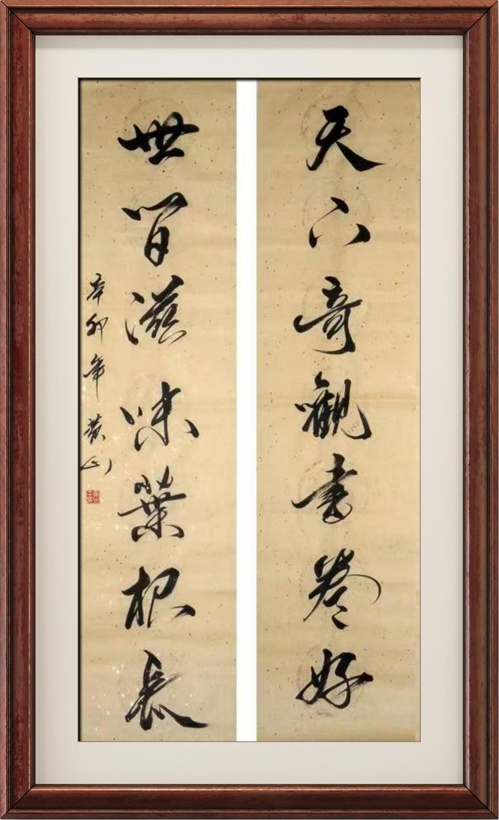 天下奇觀書卷好
世間滋味菜根長
辛卯年 黃山